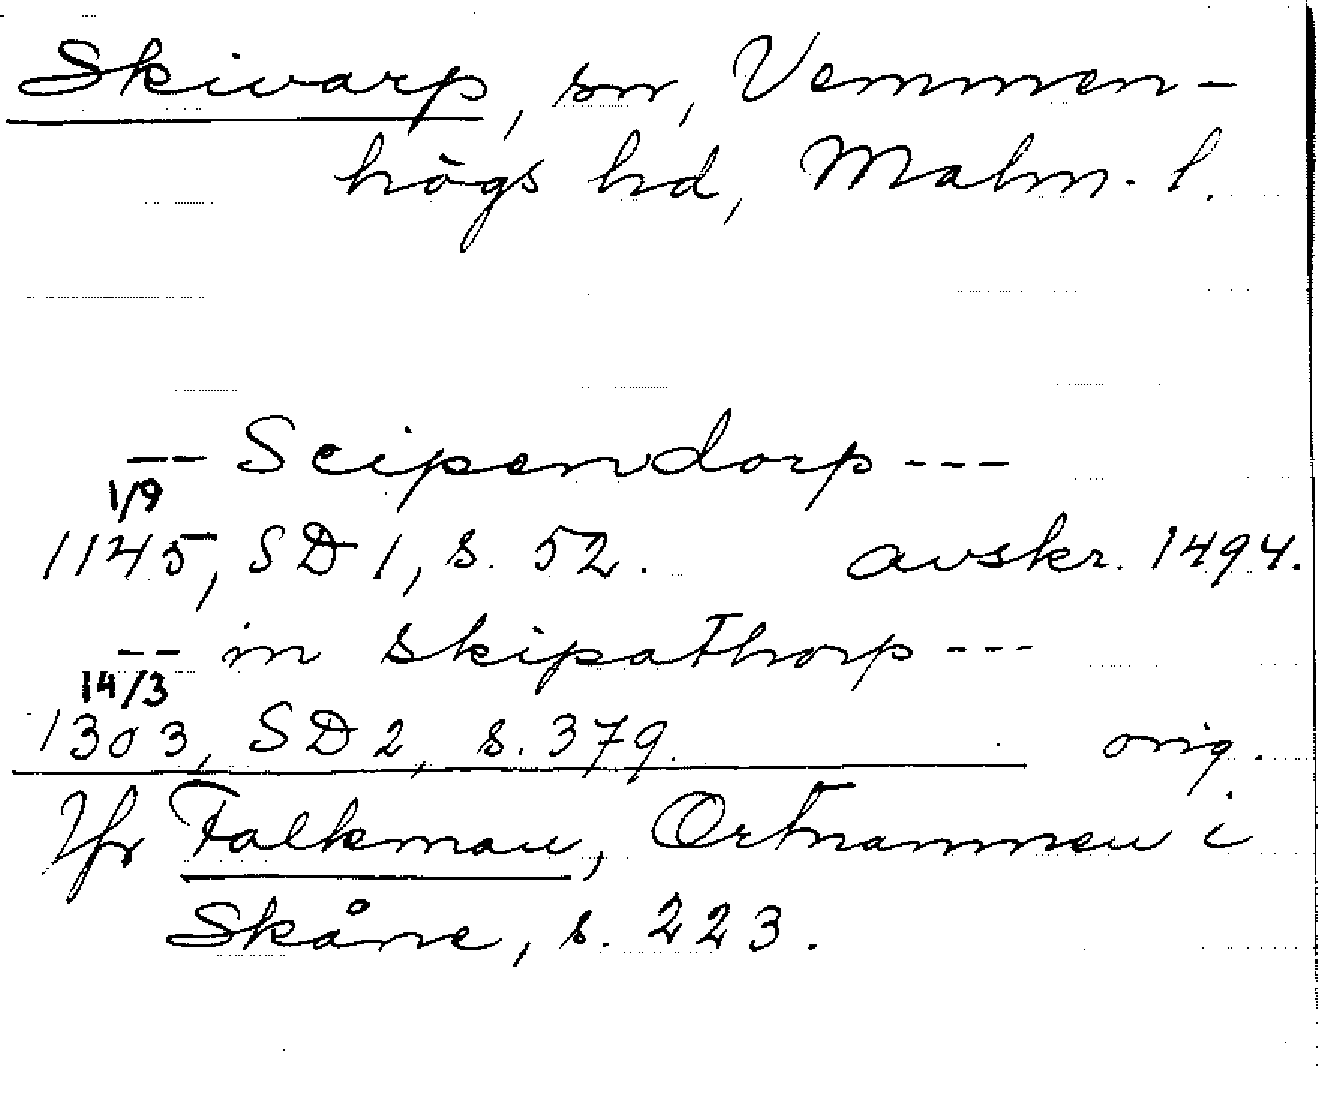 Skivarp, sn, Vemmen-
högs hd, Malm. l.
-- Scipendorp ---
1/9
1145, SD 1, s. 52. avskr. 1494.
-- in skipathorp ---
14/3
1303, SD 2, s. 379. orig.
Jfr Falkman, Ortnamnen i
Skåne, s. 223.